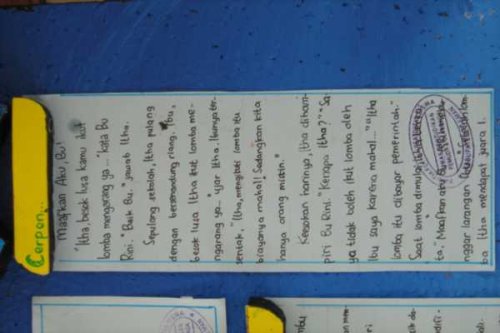 Cerpen..
Maafkan Aku Bu!
"Itha, besok lusa kamu ikut
lomba mengarang ya... kata Bu
Rini. "Baik Bu." jawab Itha.
Sepulang sekolah, Itha pulang
dengan bersenandung riang. "Bu,
besok lusa Itha ikut lomba me-
ngarang ya.." ujar Itha. Ibunya ter-
sentak, "Itha, mengikuti lomba itu
biayanya mahal! Sedangkan kita
hanya orang miskin."
Keesokan harinya, Itha diham-
piri Bu Rini. "Kenapa Itha?" "Sa-
ya tidak boleh ikut lomba oleh
Ibu saya karena mahal..." "Itha
lomba itu dibayar pemerintah."
Saat lomba dimulai,
ta. "Maafkan aku Bu
nggar larangan
ba Itha mendapat juara 1.